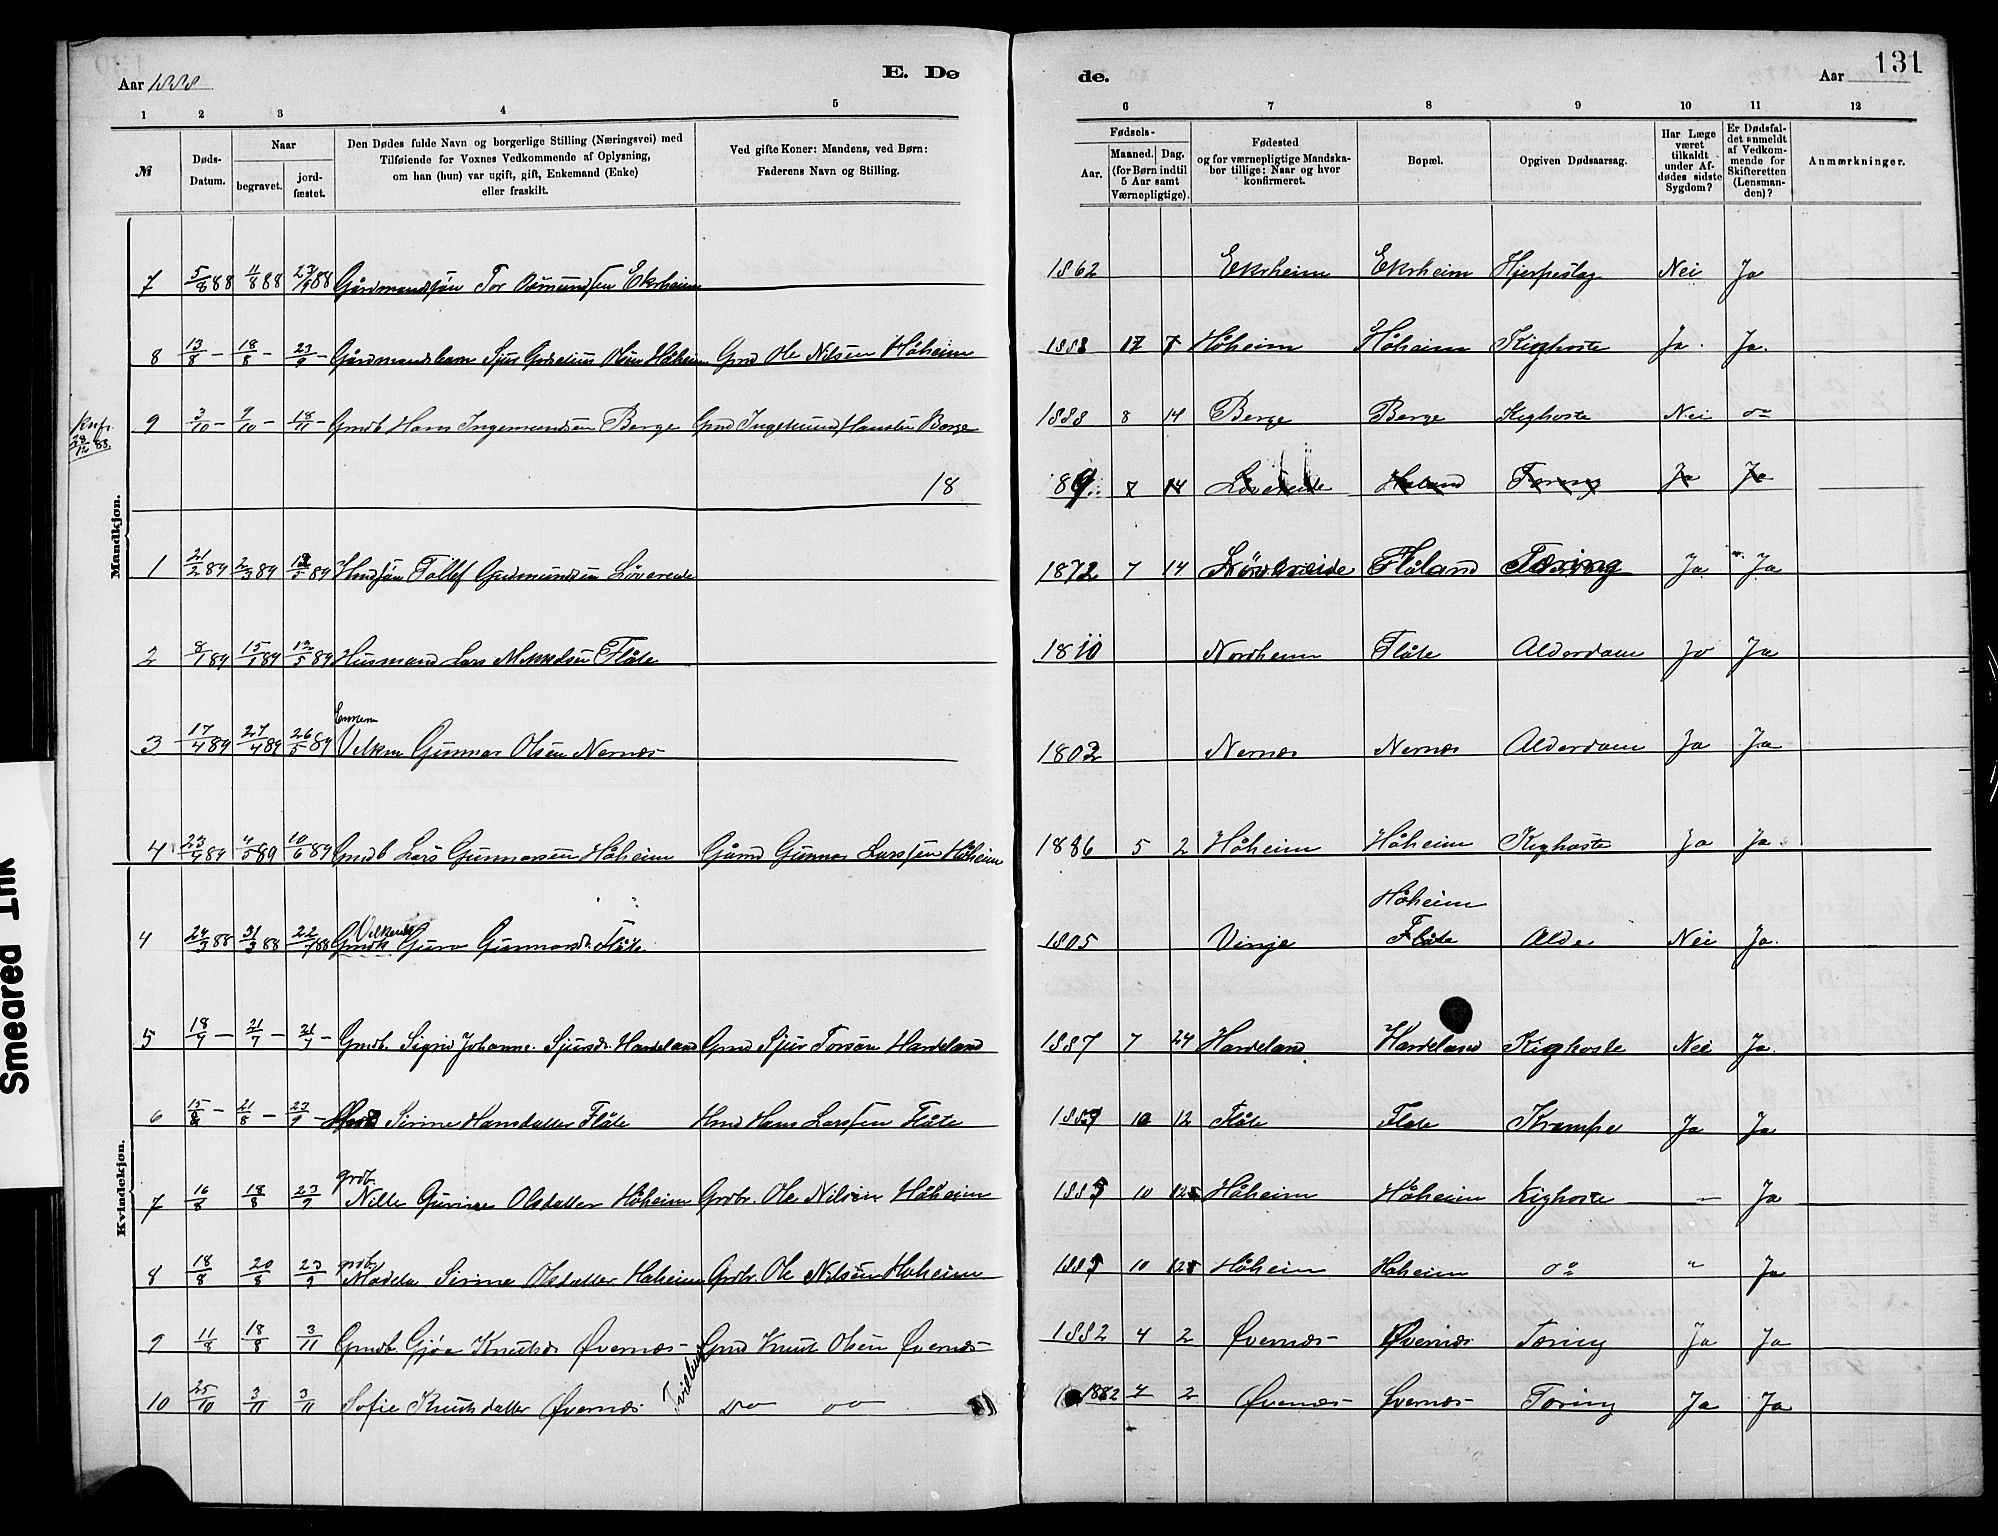 Aar 1888
E. Dø
de.
Aar
131
1 2 3 4 5 6 7 8 9 10 11 12
№
Døds-
Datum.
Naar
begravet.
jord-
fæstet.
Den Dødes fulde Navn og borgerlige Stilling (Næringsvei) med
Tilføiende for Voxnes Vedkommende af Oplysning,
om han (hun) var ugift, gift, Enkemand (Enke)
eller fraskilt.
Ved gifte Koner: Mandens, ved Børn:
Faderens Navn og Stilling.
Fødsels-
Aar.
Maaned.
Dag.
(for Børn indtil
5 Aar samt
Værnepligtige).
Fødested
og for værnepligtige Mandska-
ber tillige: Naar og hvor
konfirmeret.
Bopæl.
Opgiven Dødsaarsag.
Har Læge
været
tilkaldt
under Af-
dødes sidste
Sygdom?
Er Dødsfal-
det anmeldt
af Vedkom-
mende for
Skifteretten
(Lensman-
den)?
Anmærkninger.
Mandkjøn.
7 5/8 88 11/8 88 23/9 88 Gårdmandssøn Tor Osmundsen Ekrheim 1862 Ekrheim Ekrheim Hjerteslag Nei Ja
8 13/8 - 18/8 - 23/9 - Gårdmandsbarn Sjur Olsen Håheim Gmd Ole Nilsen Håheim 1888 Håheim Håheim Kighoste Ja. Ja.
9 3/10 - 9/10 - 18/11 - Gmdb Hans Ingemundsen Berge Gmd Ingemund Hansen Berge 1888 8 14 Berge Berge Kighoste Nei do
28/12 88.
18 Ja Ja
1 21/2 89 2/3 89 Tollef Gudmundsen Løvereide 1872 7 14 Tæring Ja Ja
2 8/1 89 15/1 89 12/5 89 Husmand Lars Flåte 1810 Nordheim Flåte Alderdom Ja Ja
3 17/4 89 27/4 89 26/5 89 Gunnar Olsen Nernæs 1803 Nernæs Nernæs Alderdom Ja Ja
4 23/4 89 4/5 89 10/6 89 Gmdb Lars Gunnarsen Håheim Gårmd Gunnar Larssen Håheim 1886 5 2 Håheim Håheim Kighoste Ja Ja
Kvindekjøn.
Håheim
4 24/3 88 31/3 88 22/ 88 Guro Gunnarsd. Flåte 1805 Vinje Flåte Alde Nei Ja.
5 18/7 - 21/7 - 21/7 - Gmdb. Sigrid Johanne Sjursd. Hardeland Gmd Sjur Torsøn Hardeland 1887 7 24 Hardeland Hardeland Kighoste Nei Ja.
6 15/8 - 21/8 - 23/9 - Sirine Hansdatter Flåte Hmd Hans Larssen Flåte 10 12 Flåte Flåte Krampe Ja Ja
7 16/8 18/8 23/9 grdb. Nille Gurine Olsdatter Håheim Grdbr. Ole Nilsen Håheim 10 Håheim Håheim Kighoste - Ja
8 18/8 20/8 23/9 grdb. Sirine Olsdatter Håheim Grdbr. Ole Nilsen Håheim 10 Håheim Håheim do " Ja
9 11/8 18/8 3/11 Gmdb Gjøa Knutsd. Øvernæs Gmd Knut Olsen Øvernæs 1882 4 2 Øvernæs Øvernæs Tæring Ja Ja
Tvillinger
10 25/10 3/11 3/11 Sofie Knutsdatter Øvernæs do do 1882 4 2 Øvernæs Øvernæs Tæring Ja Ja
Smeared Ink